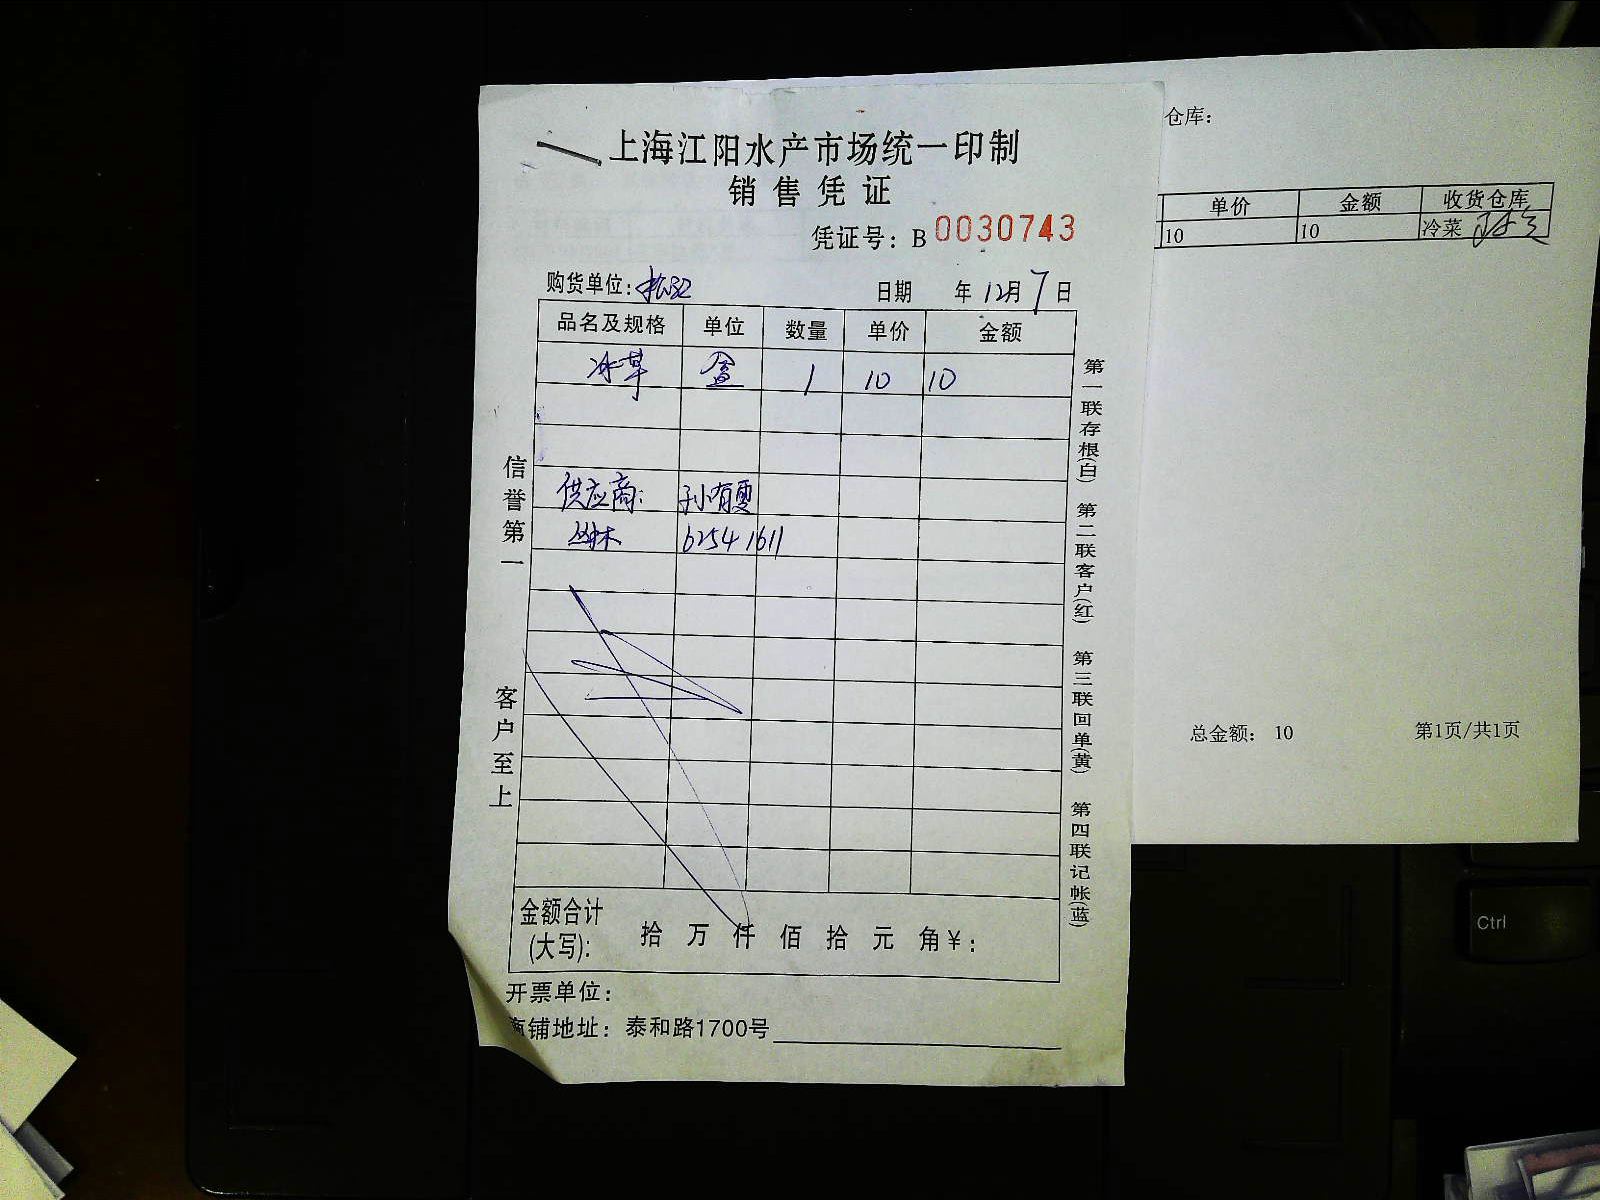 上海江阳水产市场统一印制
销售凭证
凭证号：B 0030743
购货单位：
日期 年 12月 7日
品名及规格 单位 数量 单价 金额
冰草 盒 1 10 10
供应商： 孙有雯
62541611
金额合计
(大写)： 拾 万 仟 佰 拾 元 角 ¥：
开票单位：
商铺地址：泰和路1700号
信誉第一
客户至上
第一联存根(白) 第二联客户(红) 第三联回单(黄) 第四联记帐(蓝)
仓库：
单价 金额 收货仓库
10 10 冷菜
总金额： 10 第1页/共1页
Ctrl